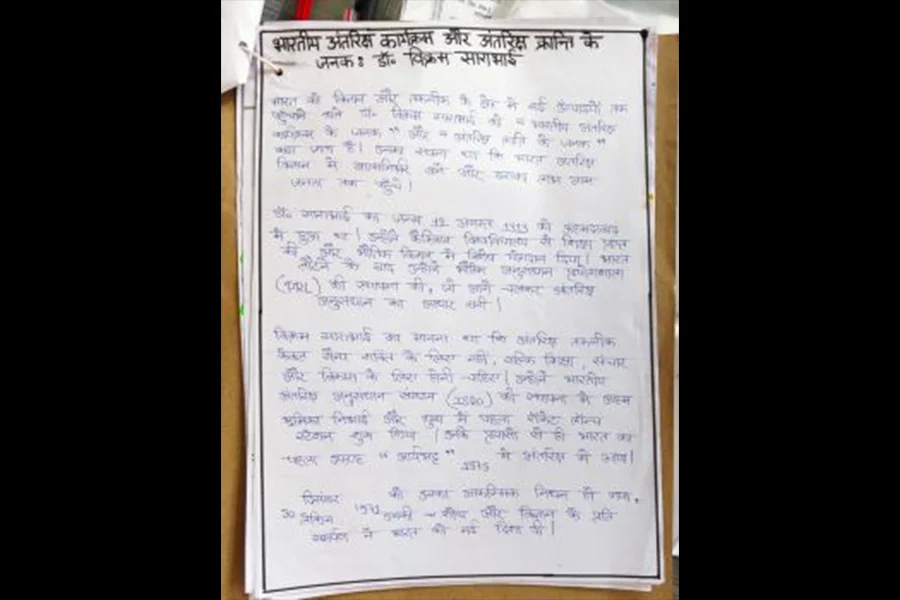 भारतीय अंतरिक्ष कार्यक्रम और अंतरिक्ष क्रान्ति के
जनक: डॉ॰ विक्रम साराभाई
भारत को विज्ञान और तकनीक के क्षेत्र में नई ऊंचाइयों तक
पहुंचाने वाले डॉ॰ विक्रम साराभाई को "भारतीय अंतरिक्ष
कार्यक्रम के जनक" और "अंतरिक्ष क्रांति के जनक"
कहा जाता है। उनका सपना था कि भारत अंतरिक्ष
विज्ञान में आत्मनिर्भर बने और उसका लाभ आम
जनता तक पहुँचे।
डॉ॰ साराभाई का जन्म 12 अगस्त 1919 को अहमदाबाद
में हुआ था। उन्होंने कैम्ब्रिज विश्वविद्यालय से शिक्षा प्राप्त
की और भौतिक विज्ञान में विशेष योगदान दिया। भारत
लौटने के बाद उन्होंने भौतिक अनुसंधान प्रयोगशाला
(PRL) की स्थापना की, जो आगे चलकर अंतरिक्ष
अनुसंधान का आधार बनी।
विक्रम साराभाई का मानना था कि अंतरिक्ष तकनीक
केवल सैन्य शक्ति के लिए नहीं, बल्कि शिक्षा, संचार
और विकास के लिए होनी चाहिए। उन्होंने भारतीय
अंतरिक्ष अनुसंधान संगठन (ISRO) की स्थापना में अहम
भूमिका निभाई और थुंबा में पहला रॉकेट लॉन्च
स्टेशन शुरू किया। उनके प्रयासों से ही भारत का
पहला उपग्रह "आर्यभट्ट" 1975 में अंतरिक्ष में गया।
30 दिसंबर 1971 को उनका आकस्मिक निधन हो गया,
लेकिन उनकी सोच और विज्ञान के प्रति
समर्पण ने भारत को नई दिशा दी।